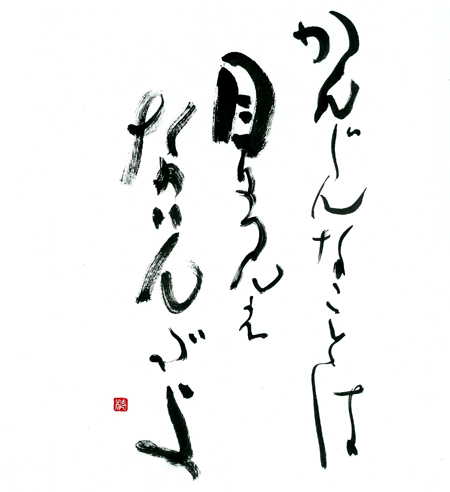 かんじんなことは
目にみえ
ないんだよ